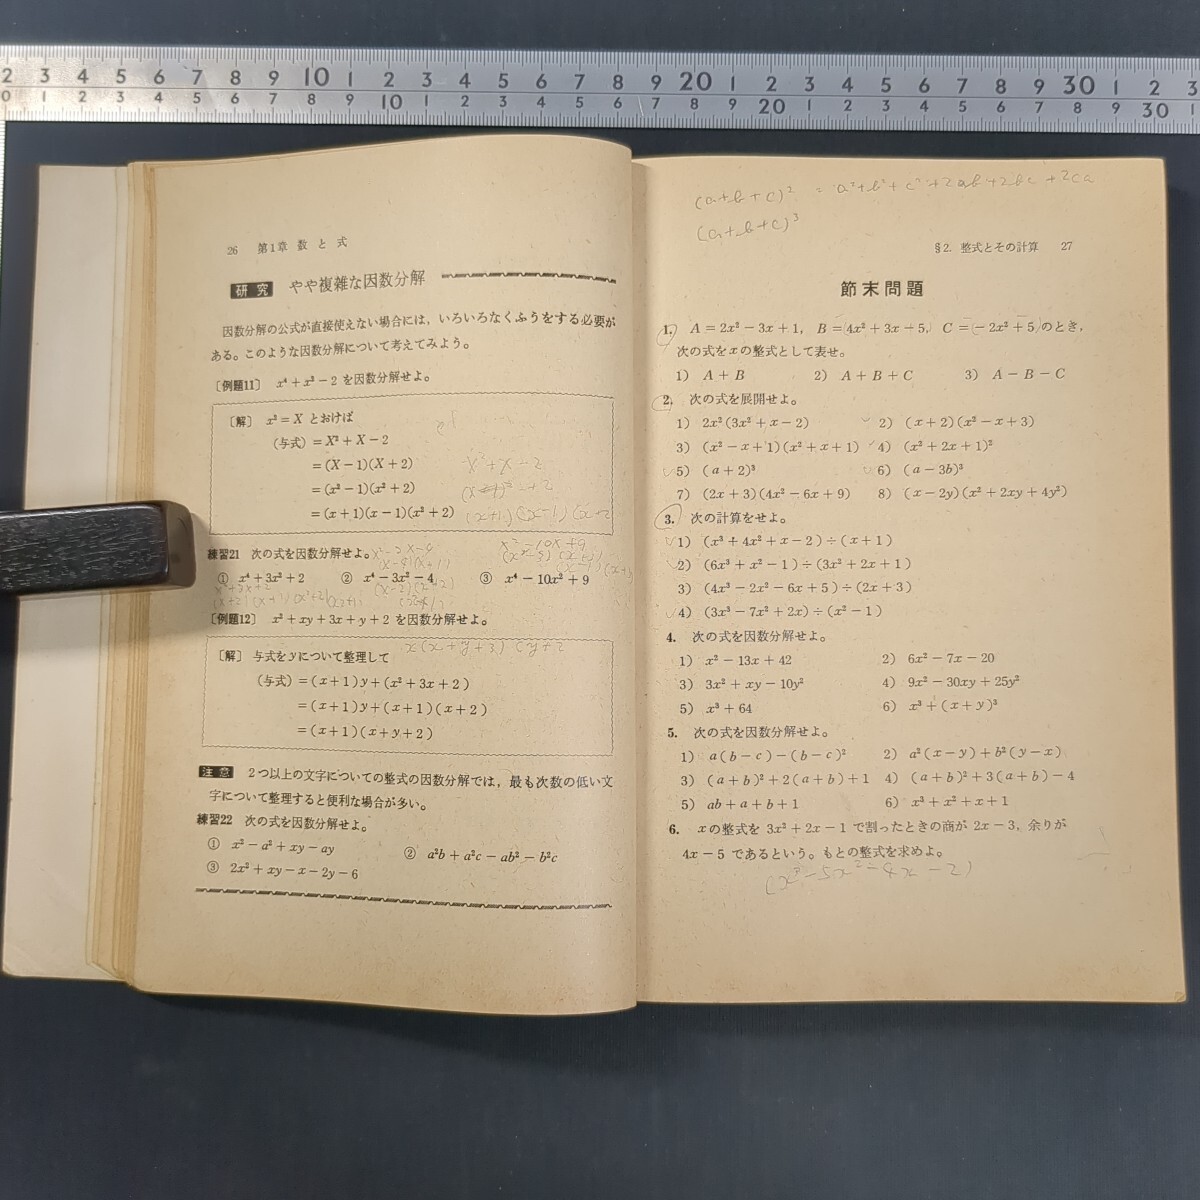 2 3 4 5 6 7 8 9 10 1 2 3 4 5 6 7 8 9 20 1 2 3 4 5 6 7 8 9 30 1 2 3
0 1 2 3 4 5 6 7 8 9 10 1 2 3 4 5 6 7 8 9 20 1 2 3 4 5 6 7 8 9 30 1
26 第1章 数と式
研究 やや複雑な因数分解
因数分解の公式が直接使えない場合には，いろいろなくふうをする必要が
ある。このような因数分解について考えてみよう。
〔例題11〕 x⁴+x²−2 を因数分解せよ。
〔解〕 x²=X とおけば
(与式)=X²+X−2
=(X−1)(X+2)
=(x²−1)(x²+2)
=(x+1)(x−1)(x²+2)
練習21 次の式を因数分解せよ。
① x⁴+3x²+2 ② x⁴−3x²−4 ③ x⁴−10x²+9
〔例題12〕 x²+xy+3x+y+2 を因数分解せよ。
〔解〕 与式をyについて整理して
(与式)=(x+1)y+(x²+3x+2)
=(x+1)y+(x+1)(x+2)
=(x+1)(x+y+2)
注意 2つ以上の文字についての整式の因数分解では，最も次数の低い文
字について整理すると便利な場合が多い。
練習22 次の式を因数分解せよ。
① x²−a²+xy−ay ② a²b+a²c−ab²−b²c
③ 2x²+xy−x−2y−6
(a+b+c)² = a²+b²+c²+2ab+2bc+2ca
(a+b+c)³
§2. 整式とその計算 27
節末問題
1. A=2x²−3x+1, B=4x²+3x+5, C=−2x²+5のとき，
次の式をxの整式として表せ。
1) A+B 2) A+B+C 3) A−B−C
2. 次の式を展開せよ。
1) 2x²(3x²+x−2) 2) (x+2)(x²−x+3)
3) (x²−x+1)(x²+x+1) 4) (x²+2x+1)²
5) (a+2)³ 6) (a−3b)³
7) (2x+3)(4x²−6x+9) 8) (x−2y)(x²+2xy+4y²)
3. 次の計算をせよ。
1) (x³+4x²+x−2)÷(x+1)
2) (6x³+x²−1)÷(3x²+2x+1)
3) (4x³−2x²−6x+5)÷(2x+3)
4) (3x³−7x²+2x)÷(x²−1)
4. 次の式を因数分解せよ。
1) x²−13x+42 2) 6x²−7x−20
3) 3x²+xy−10y² 4) 9x²−30xy+25y²
5) x³+64 6) x³+(x+y)³
5. 次の式を因数分解せよ。
1) a(b−c)−(b−c)² 2) a²(x−y)+b²(y−x)
3) (a+b)²+2(a+b)+1 4) (a+b)²+3(a+b)−4
5) ab+a+b+1 6) x³+x²+x+1
6. xの整式を 3x²+2x−1 で割ったときの商が 2x−3，余りが
4x−5 であるという。もとの整式を求めよ。
(x³−5x²−4x−2)